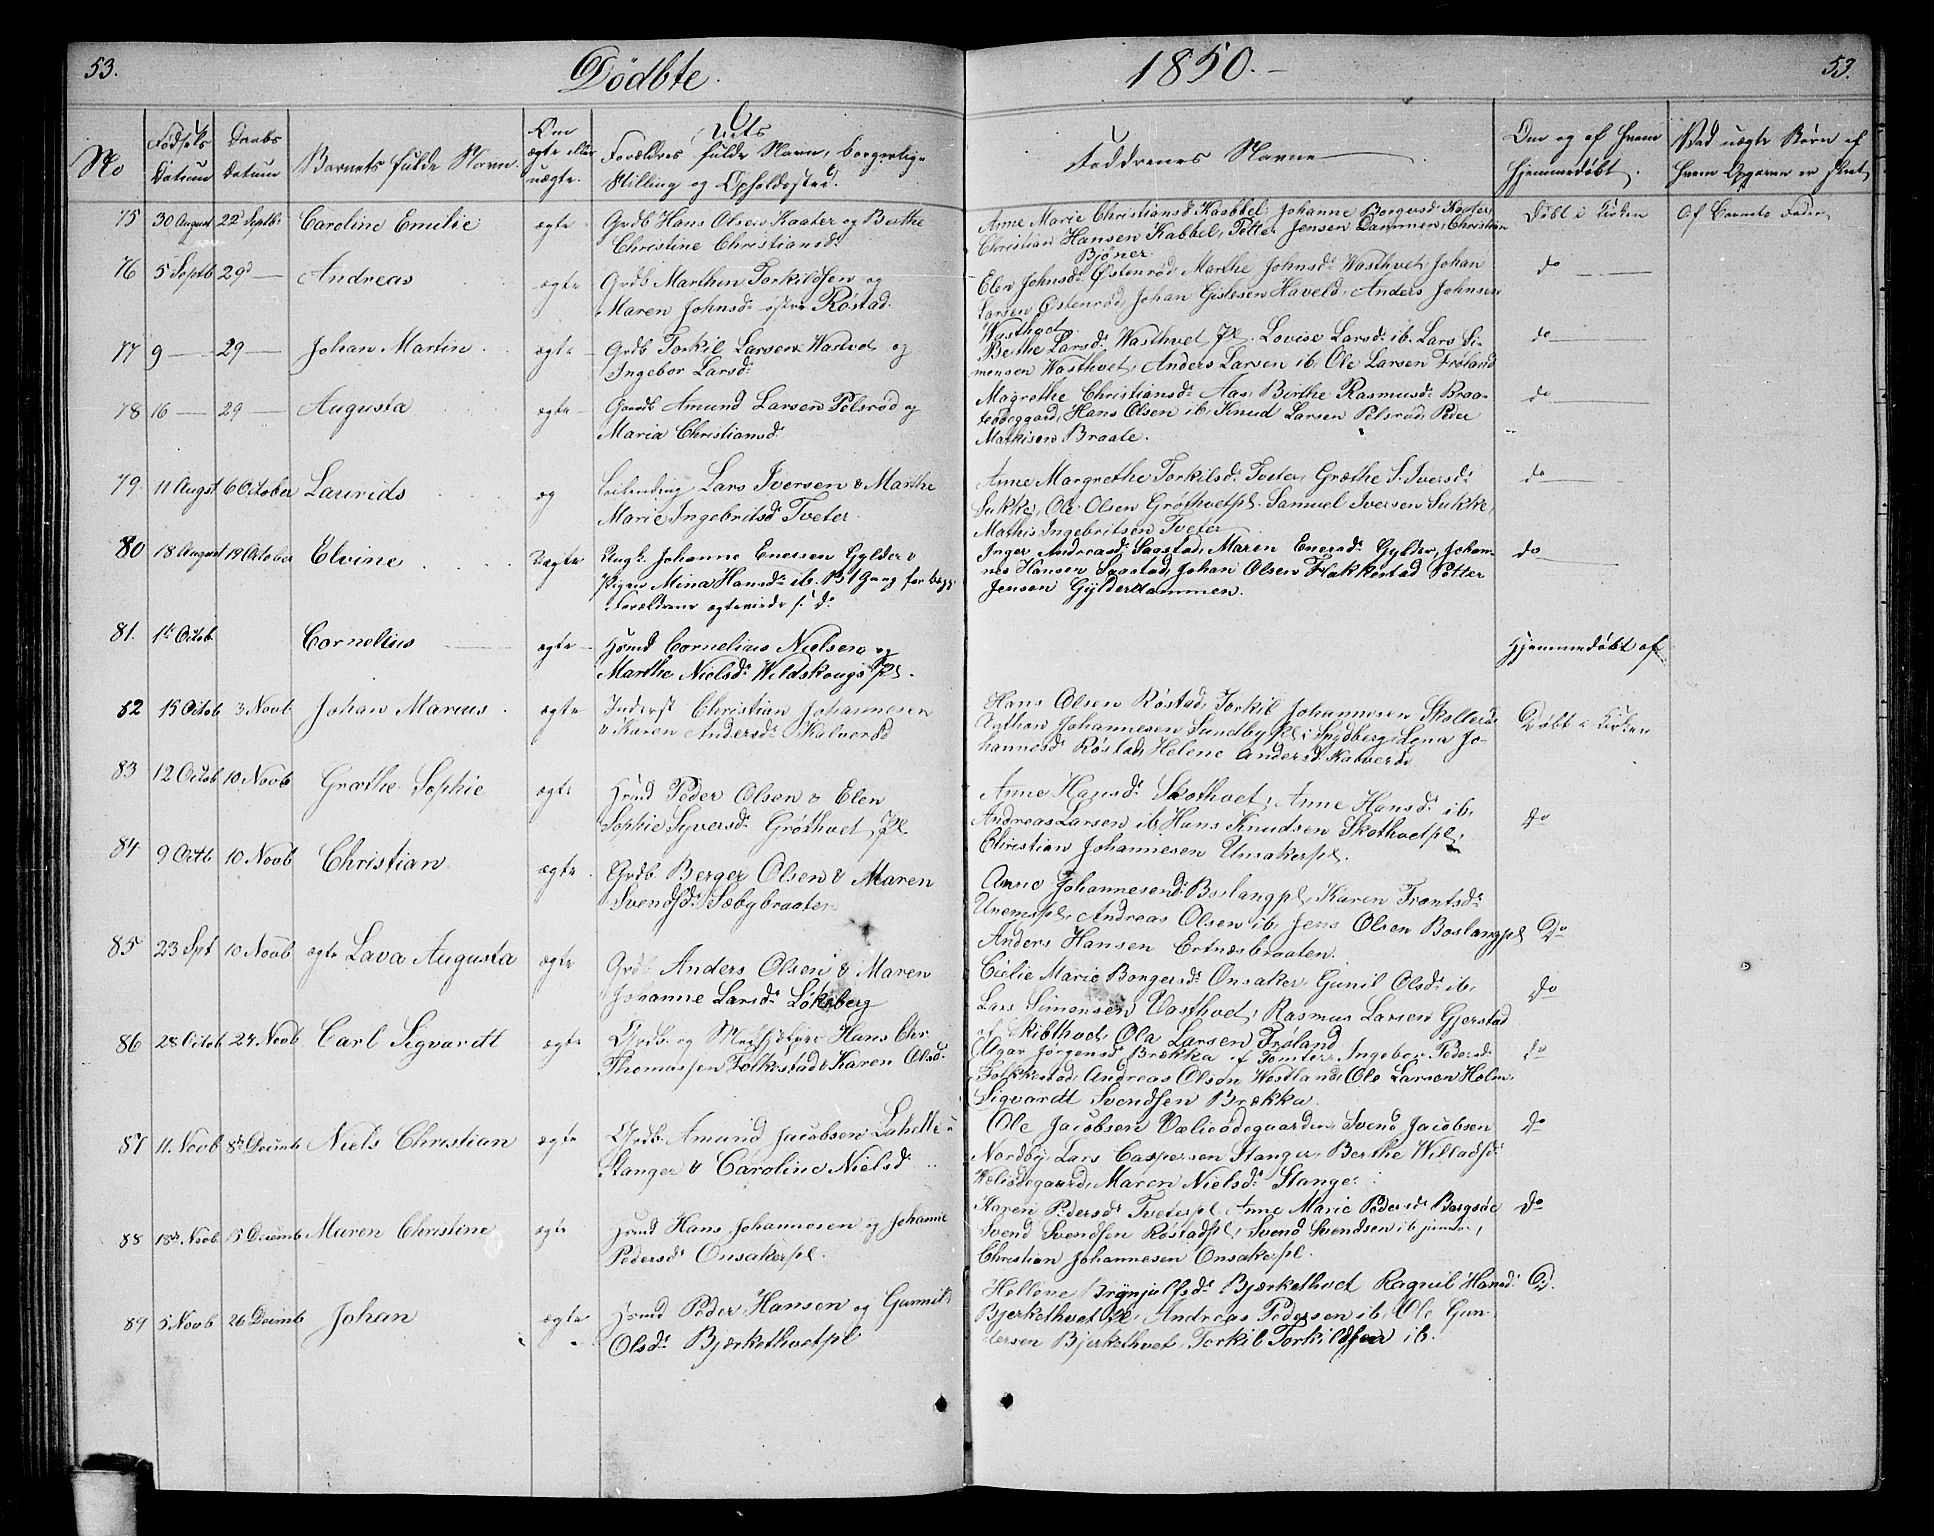 53. Dödbte. 1850. 53.
No
Födsels Datum
Daabs Datum
Barnets fulde Navn.
Om ægte eller uægte.
Forældres fulde Navn, borgerlige
Stilling og Opholdssted.
Faddrenes Navne
Om og af hvem
hjemmedöbt.
Ved uægte Börn af
hvem Opgaven er skeet
75 30 August 22d Septb. Caroline Emilie ægte Grdb Hans Olsen Kaater og Berthe
Christine Christiansd.
Anne Marie Christiansd Kabbel, Johanne Borgersd Kaater,
Christian Hansen Kabbel, Petter Jensen Dammen, Christian
Bjöner.
Döbt i Kirken
Af Barnets Fader,
76 5 Septb 29d Andreas ægte Grdb Marthin Torkildsen og
Maren Johnsd. östre Röstad.
Elen Johnsd. Östenröd, Marthe Johnsd. Wasthvet, Johan
Larsen Östenröd, Johan Gislesen Haveld, Anders Johnsen
Wasthvet.
do
77 9 29 Johan Martin ægte Grdb Torkil Larsen Wastvet og
Ingebor Larsd.
Bethe Larsd. Wasthvet Pl. Lovise Larsd. ib. Lars Si-
mensen Wasthvet, Anders Larsen ib. Ole Larsen Fröland
do
78 16 29 Augusta ægte Gaardb Amund Larsen Pelsröd og
Maria Christiansd.
Magrethe Christiansd. Aas, Birthe Rasmusd. Braa-
teödeggard, Hans Olsen ib. Knud Larsen Pelsröd, Peder
Mathisen Braate.
do
79 11 Augst 6 October Laurids æg Leilending Lars Iversen & Marthe
Marie Ingebritsd. Tveter.
Anne Margrethe Torkilsd. Tveter, Græthe S. Iversd.
Sukke, Ole Olsen Gröthvetpl. Samuel Iversen Sukke,
Mathis Ingebritsen Tveter
do
80 18 August 19 October Elvine Uægte Ungk. Johanne Enersen Gylder &
Pigen Mina Hansd. ib. B 1 Gang for begge
Forældrene
Inger Andreasd. Saastad, Maren Enersd. Gylder, Johan-
nes Hansen Saastad, Johan Olsen Flakkestad Petter
Jensen Gylderdammen.
do
81. 1te Octob. Cornelius ægte Husmd Cornelius Nielsen og
Marthe Nielsd. Wildskougs Pl.
Hjemmedöbt af
82 15 Octob 3 Novb. Johan Marius ægte Inderst Christian Johannesen
& Karen Andersd. Kalveröd
Hans Olsen Röstad, Torkil Johannesen Skolleröd
Agthon Johannesen Sundby Pl. i Sydberg, Lena Jo-
hannesd. Röstad, Helene Andersd. Kalveröd
Döbt i Kirken
83 12 Octob 10 Novb Græthe Sophie ægte Husmd Peder Olsen & Elen
Sophie Syversd. Gröthvet Pl.
Anne Hansd. Skothvet, Anne Hansd. ib.
Andreas Larsen ib. Hans Knudsen Skothvetpl.
Christian Johannesen Unsakerpl.
do
84 9 Octb 10 Novb Christian ægte Grdb. Berger Olsen & Maren
Svendsd. Sæbybraaten
Anne Johannesend. Boslangpl. Karen Frantsd.
Unemspl. Andreas Olsen ib. Jens Olsen Boslangpl
Anders Hansen Ertnæsbraaten.
Do
85 23 Spt 10 Novb ægte Lava Augusta ægte Grdb Anders Olsen & Maren
Johanne Larsd. Lökeberg
Cicilie Marie Borgersd. Onsaker, Gunil Olsd. ib.
Lars Simensen Vasthvet, Rasmus Larsen Gjerstad
af Skibthvet, Ola Larsen Fröland
do
86 28 Octob 24 Novb Carl Sigvardt ægte Grdb. og Medhjelper Hans Chr
Thomassen Folkestad & Karen Olsd.
Agar Jörgensd. Brækka af Tomter, Ingebor Pedersd.
Folkestad, Andreas Olsen Westland, Ole Larsen Holm,
Sigvardt Svendsen Brækka.
do
87 11. Novb 8de Decmb Niels Christian ægte Grdb. Amund Jacobsen
Stanger & Caroline Nielsd
Ole Jacobsen Væliödegaarden Svend Jacobsen
Nordby, Lars Caspersen Stanger, Berthe Willadsd.
Væliödegaard, Maren Nielsd. Stange
do
88 18de Novb 15 Decemb Maren Christine ægte Husmd Hans Johannesen og Johanne
Pedersd. Onsakerpl.
Karen Pedersd. Tveterpl. Anne Marie Pedersd. Bergsöe
Svend Svendsen Röstadpl, Svend Svendsen ib junior,
Christian Johannesen Onsakerpl.
do
89 5 Novb 26 Decmb Johan ægte Husmd Peder Hansen og Gunnil
Olsd. Bjærkethvetpl
Hellene Brynjulfsd. Bjærkethvet Ragnil Hansd.
Bjerkethvet Pl, Andreas Pedersen ib. Ole Gun-
dersen Bjerkethvet, Torkil Torkildsen ib.
D.